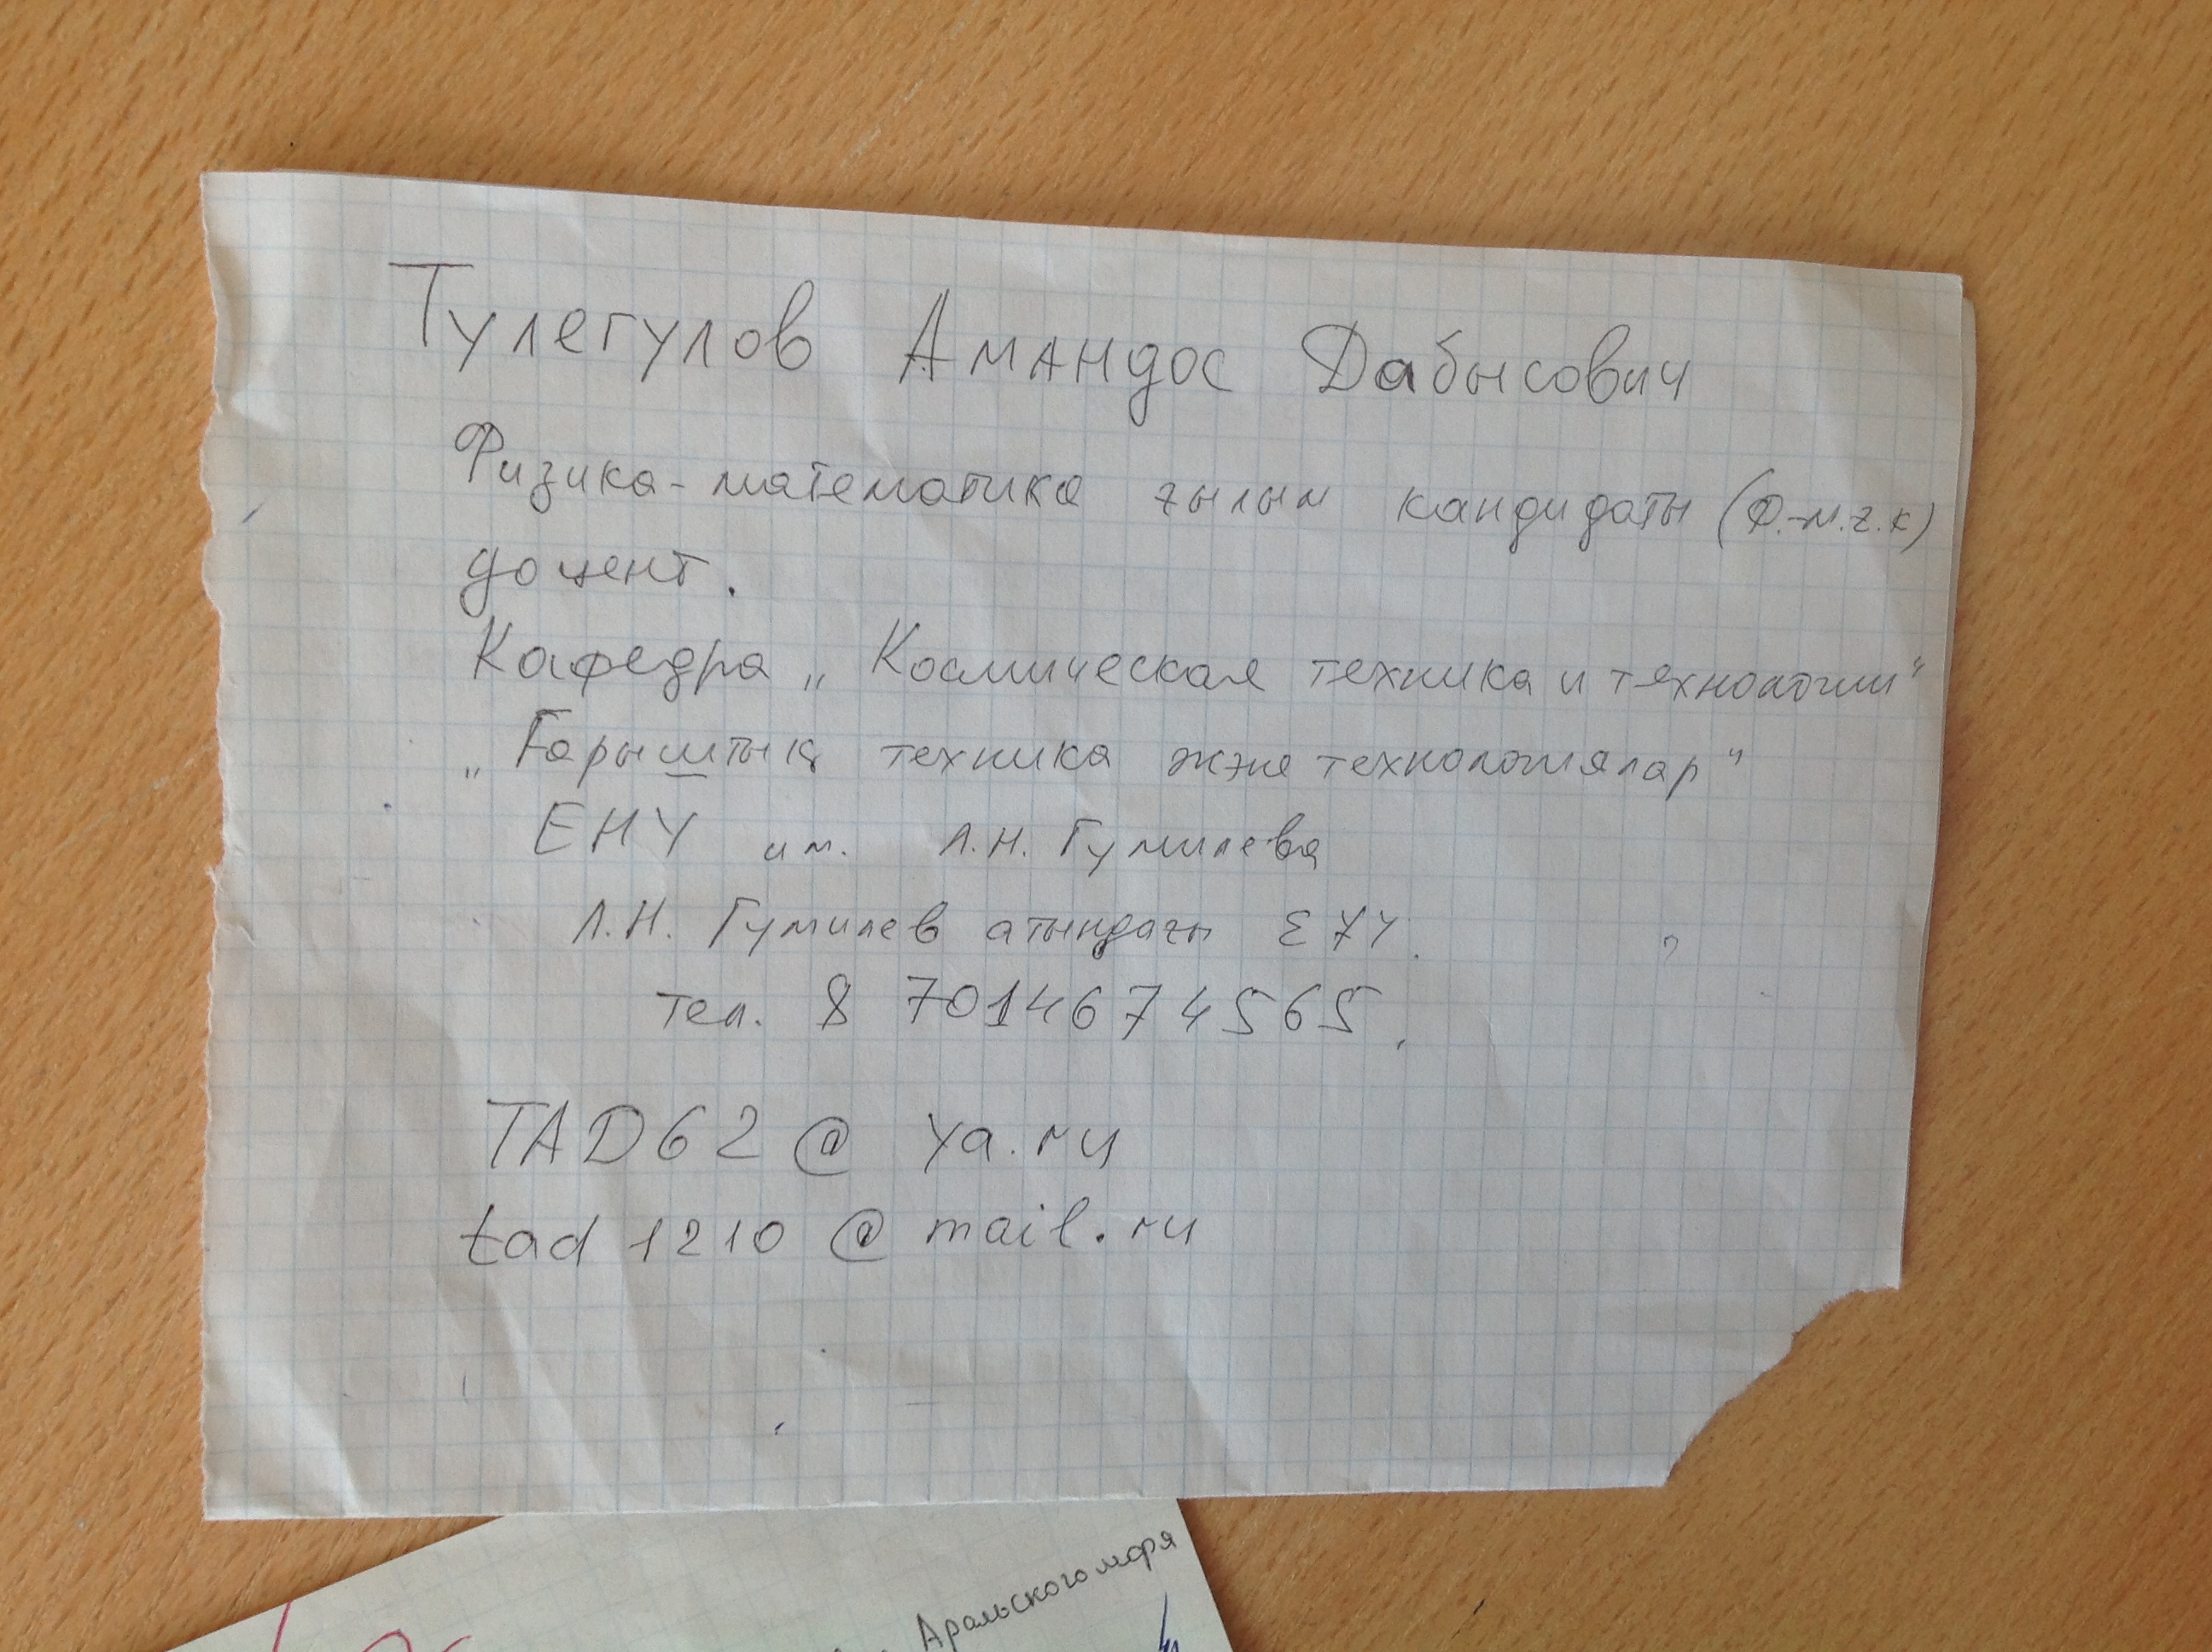 Тулегулов Амандос Дабысович
Физика-математика ғылым кандидаты (Ф.-м.ғ.к)
доцент.
Кафедра „Космическая техника и технологии"
„Ғарыштық техника және технологиялар"
ЕНУ им. Л.Н. Гумилева
Л.Н. Гумилев атындағы ЕҰУ.
тел. 8 7014674565,
TAD62@ya.ru
tad1210@mail.ru
Аральского моря